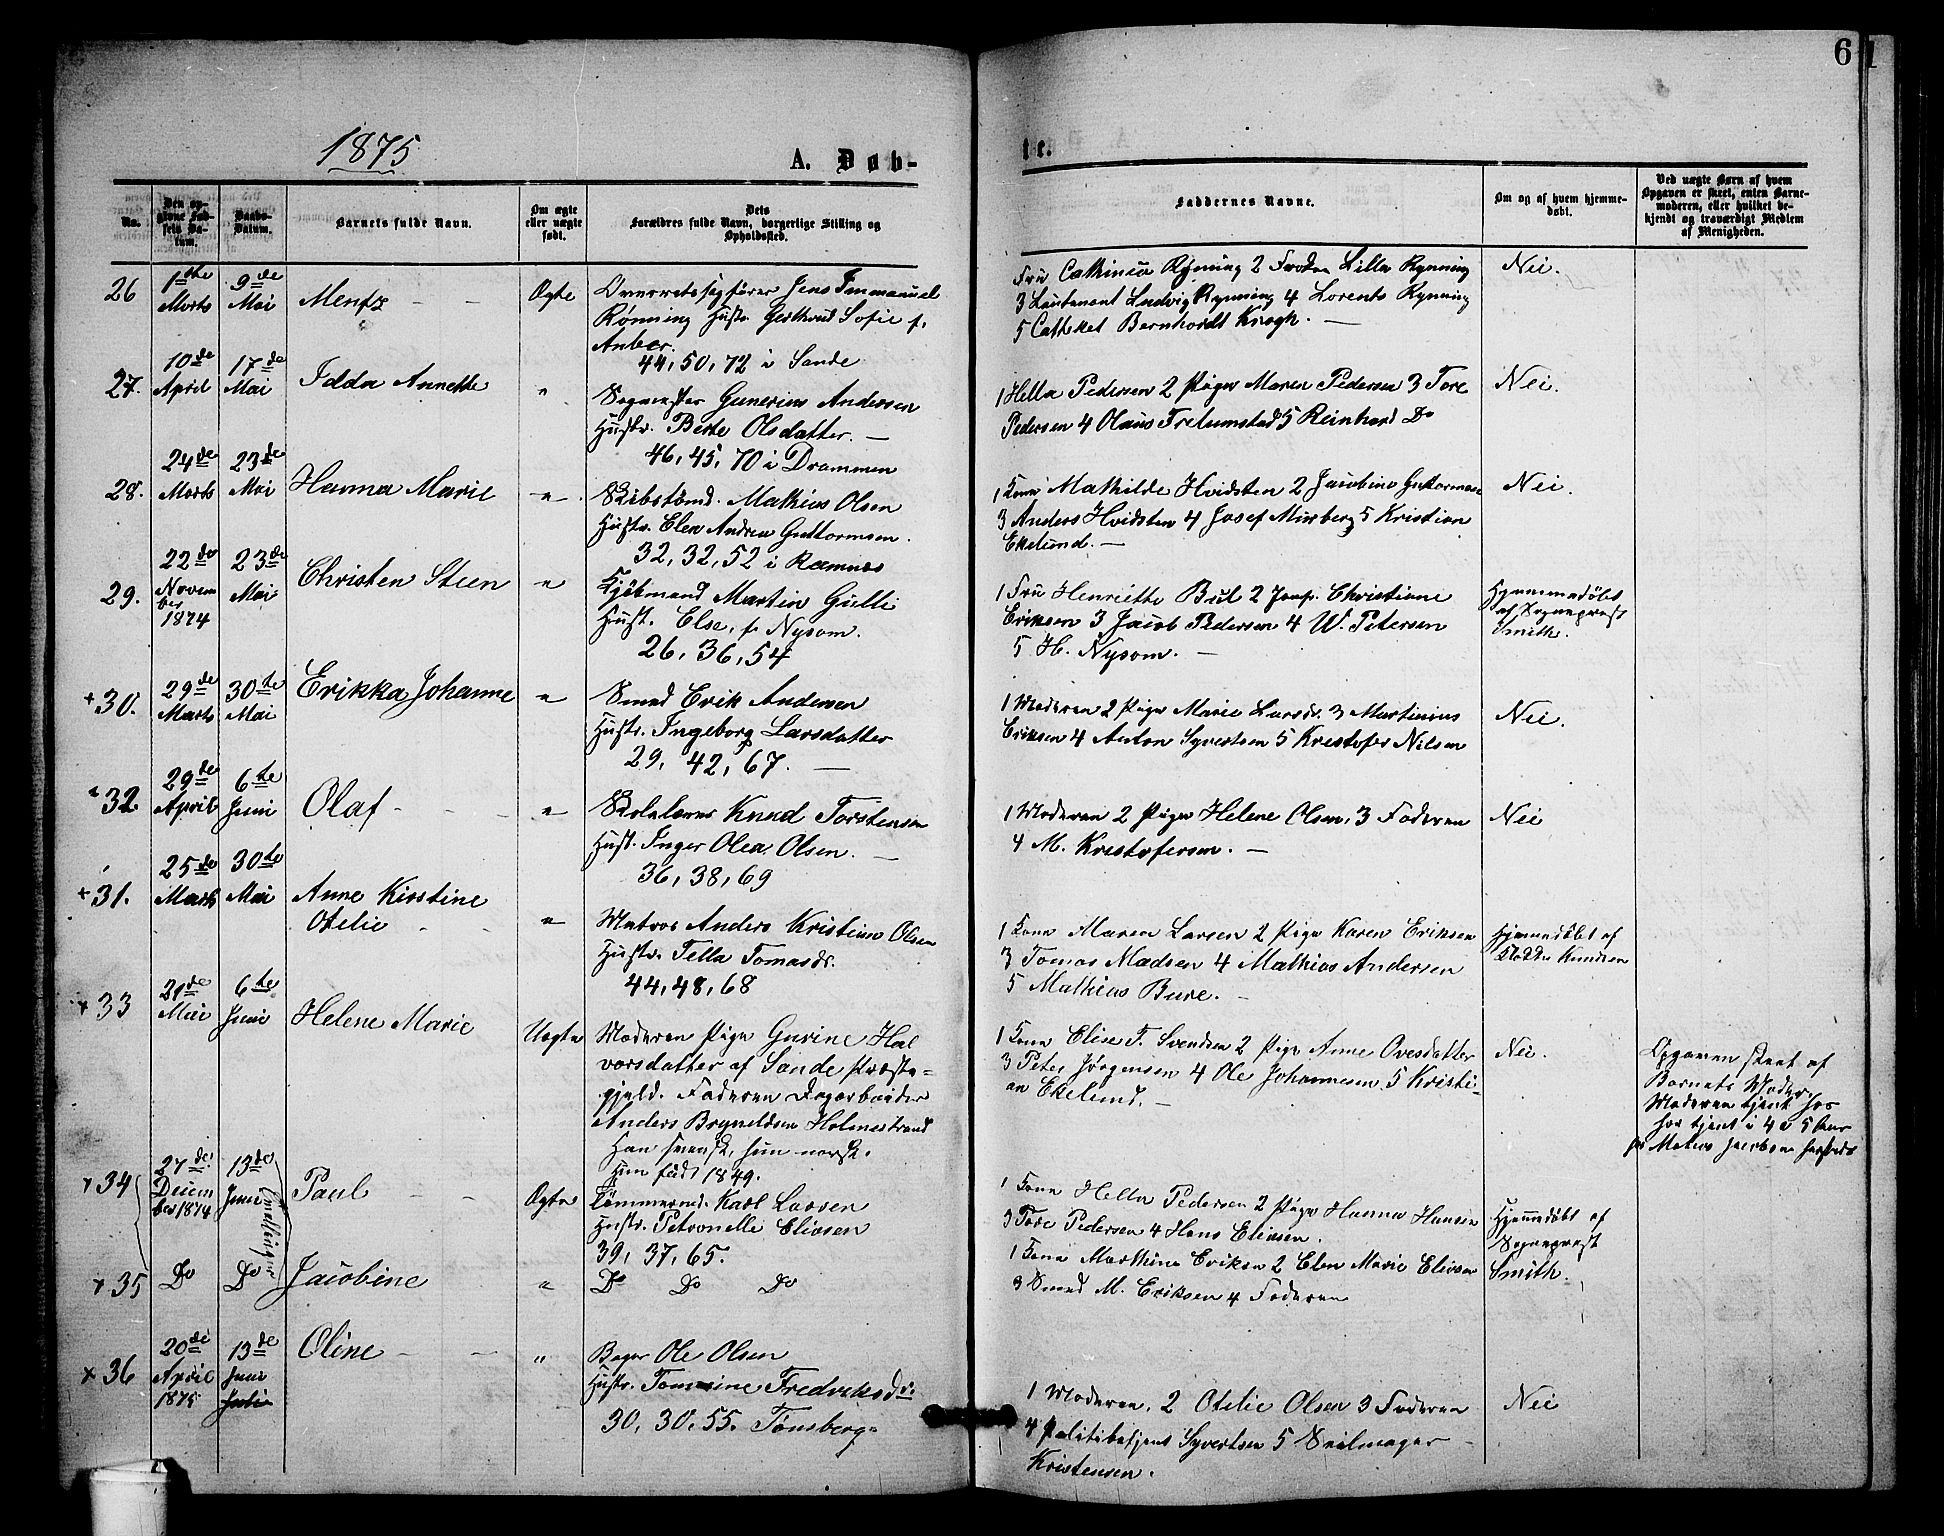 6
1875
A. Døb-
te.
No.
Den op-
givne Fød-
sels Da-
tum.
Daabs-
Datum.
Barnets fulde Navn.
Om ægte
eller uægte
født.
Dets
Forældres fulde Navn, borgerlige Stilling og
Opholdssted.
Faddernes Navne.
Om og af hvem hjemme-
døbt.
Ved uægte Børn af hvem
Opgaven er skeet, enten Barne-
moderen, eller hvilket be-
kjendt og troværdigt Medlem
af Menigheden.
26
1ste
Marts
9de
Mai
Mentz
Ægte
Overretssagfører Jens Emmanuel
Rønning Hustr. Gerthrud Sofie f.
44, 50, 72 i Sande
Fru Cathinca Rynning 2 Frøken Lilla Rynning
3 Lieutenant Ludvig Rynning 4 Lorents Rynning
5 Catheket Bernhardt Kragh.
Nei.
27.
10de
April
17de
Mai
Idda Annette
"
Gunerius Andersen
Hustr. Berte Olsdatter.
46, 45, 70 i Drammen
1 Hella Pedersen 2 Pige Maren Pedersen 3 Tore
Pedersen 4 Olaus 5 Reinhard Do
Nei.
28.
24de
Marts
23de
Mai
Hanna Marie
"
Skibstømd. Mathias Olsen
Hustr. Elen Andrea Guttormsen.
32, 32, 52 i Ramnes
1 Kone Mathilde Hvidsten 2 Jacobine Guttormsen
3 Anders Hvidsten 4 Josef Mürberg 5 Kristian
Ekelund.
Nei.
29.
22de
Novem
ber
1874
23de
Mai
Christen Steen
"
Kjøbmand Martin Gulli
Hust. Else, f. Nysom.
26, 36, 54
1 Fru Henriette Bul 2 Jomf. Christiane
Eriksen 3 Jacob Pedersen 4 W. Petersen
5 H. Nysom.
Hjemmedøbt
af Sogneprest
Smith.
+30.
29de
Marts
30te
Mai
Erikka Johanne
"
Smed Erik Andersen
Hustr. Ingeborg Larsdatter
29, 42, 67.
1 Moderen 2 Pige Marie Larsd. 3 Martinius
Eriksen 4 Anton Syvertsen 5 Kristofer Nilsen
Nei.
32.
29de
April
6te
Juni
Olaf
"
Skolelærer Knud Torstensen
Hust. Inger Olea Olsen.
36, 38, 69
1 Moderen 2 Pige Helene Olsen, 3 Faderen
4 M. Kristofersen.
Nei
+31.
25de
Marts
30te
Mai
Anne Kirstine
Otelie
"
Matros Anders Kristian Olsen
Hustr. Tella Tomasdr.
44, 48, 68
1 Kone Maren Larsen 2 Pige Karen Eriksen
3 Tomas Madsen 4 Mathias Andersen
5 Mathias Bure.
Hjemmedøbt af
Knudsen
x 33
21de
Mai
6te
Juni
Helene Marie
Uægte
Moderen Pige Gurine Hal
vorsdatter af Sande Præste-
gjeld. Faderen Dagarbeider
Anders Bryneldsen Holmestrand
Han svensk, hun norsk.
Hun født 1849.
1 Kone Elise T. Svendsen 2 Pige Anne Ovesdatter
3 Peter Jørgensen 4 Ole Johannesen 5 Kristi-
an Ekelund.
Nei.
Opgaven skeet af
Barnets Moder.
Moderen tjent hos
har tjent i 4 a 5 Aar
x 34
27de
Decem
ber 1874
13de
Juni
Tvillinger
Paul
Ægte
Tømmermd. Karl Larsen
Hustr. Petronelle Eliasen
39, 37, 65.
1 Kone Hella Pedersen 2 Pige Hanna Hansen
3 Tore Pedersen 4 Hans Eliasen.
Hjemmedøbt af
Sogneprest
Smith.
x 35
Do
Do
Jacobine
"
Do Do Do
1 Kone Marthine Eriksen 2 Elen Marie Eliasen
3 Smed M. Eriksen 4 Faderen
x 36
20de
April
1875
13de
Juni
Juli
Oline
"
Bager Ole Olsen
Hustr. Tomine Fredriksdr.
30, 30, 55. Tønsberg
1 Moderen, 2 Otelie Olsen 3 Faderen
4 Politibetjent Syvertsen 5 Seilmager
Kristensen.
Nei